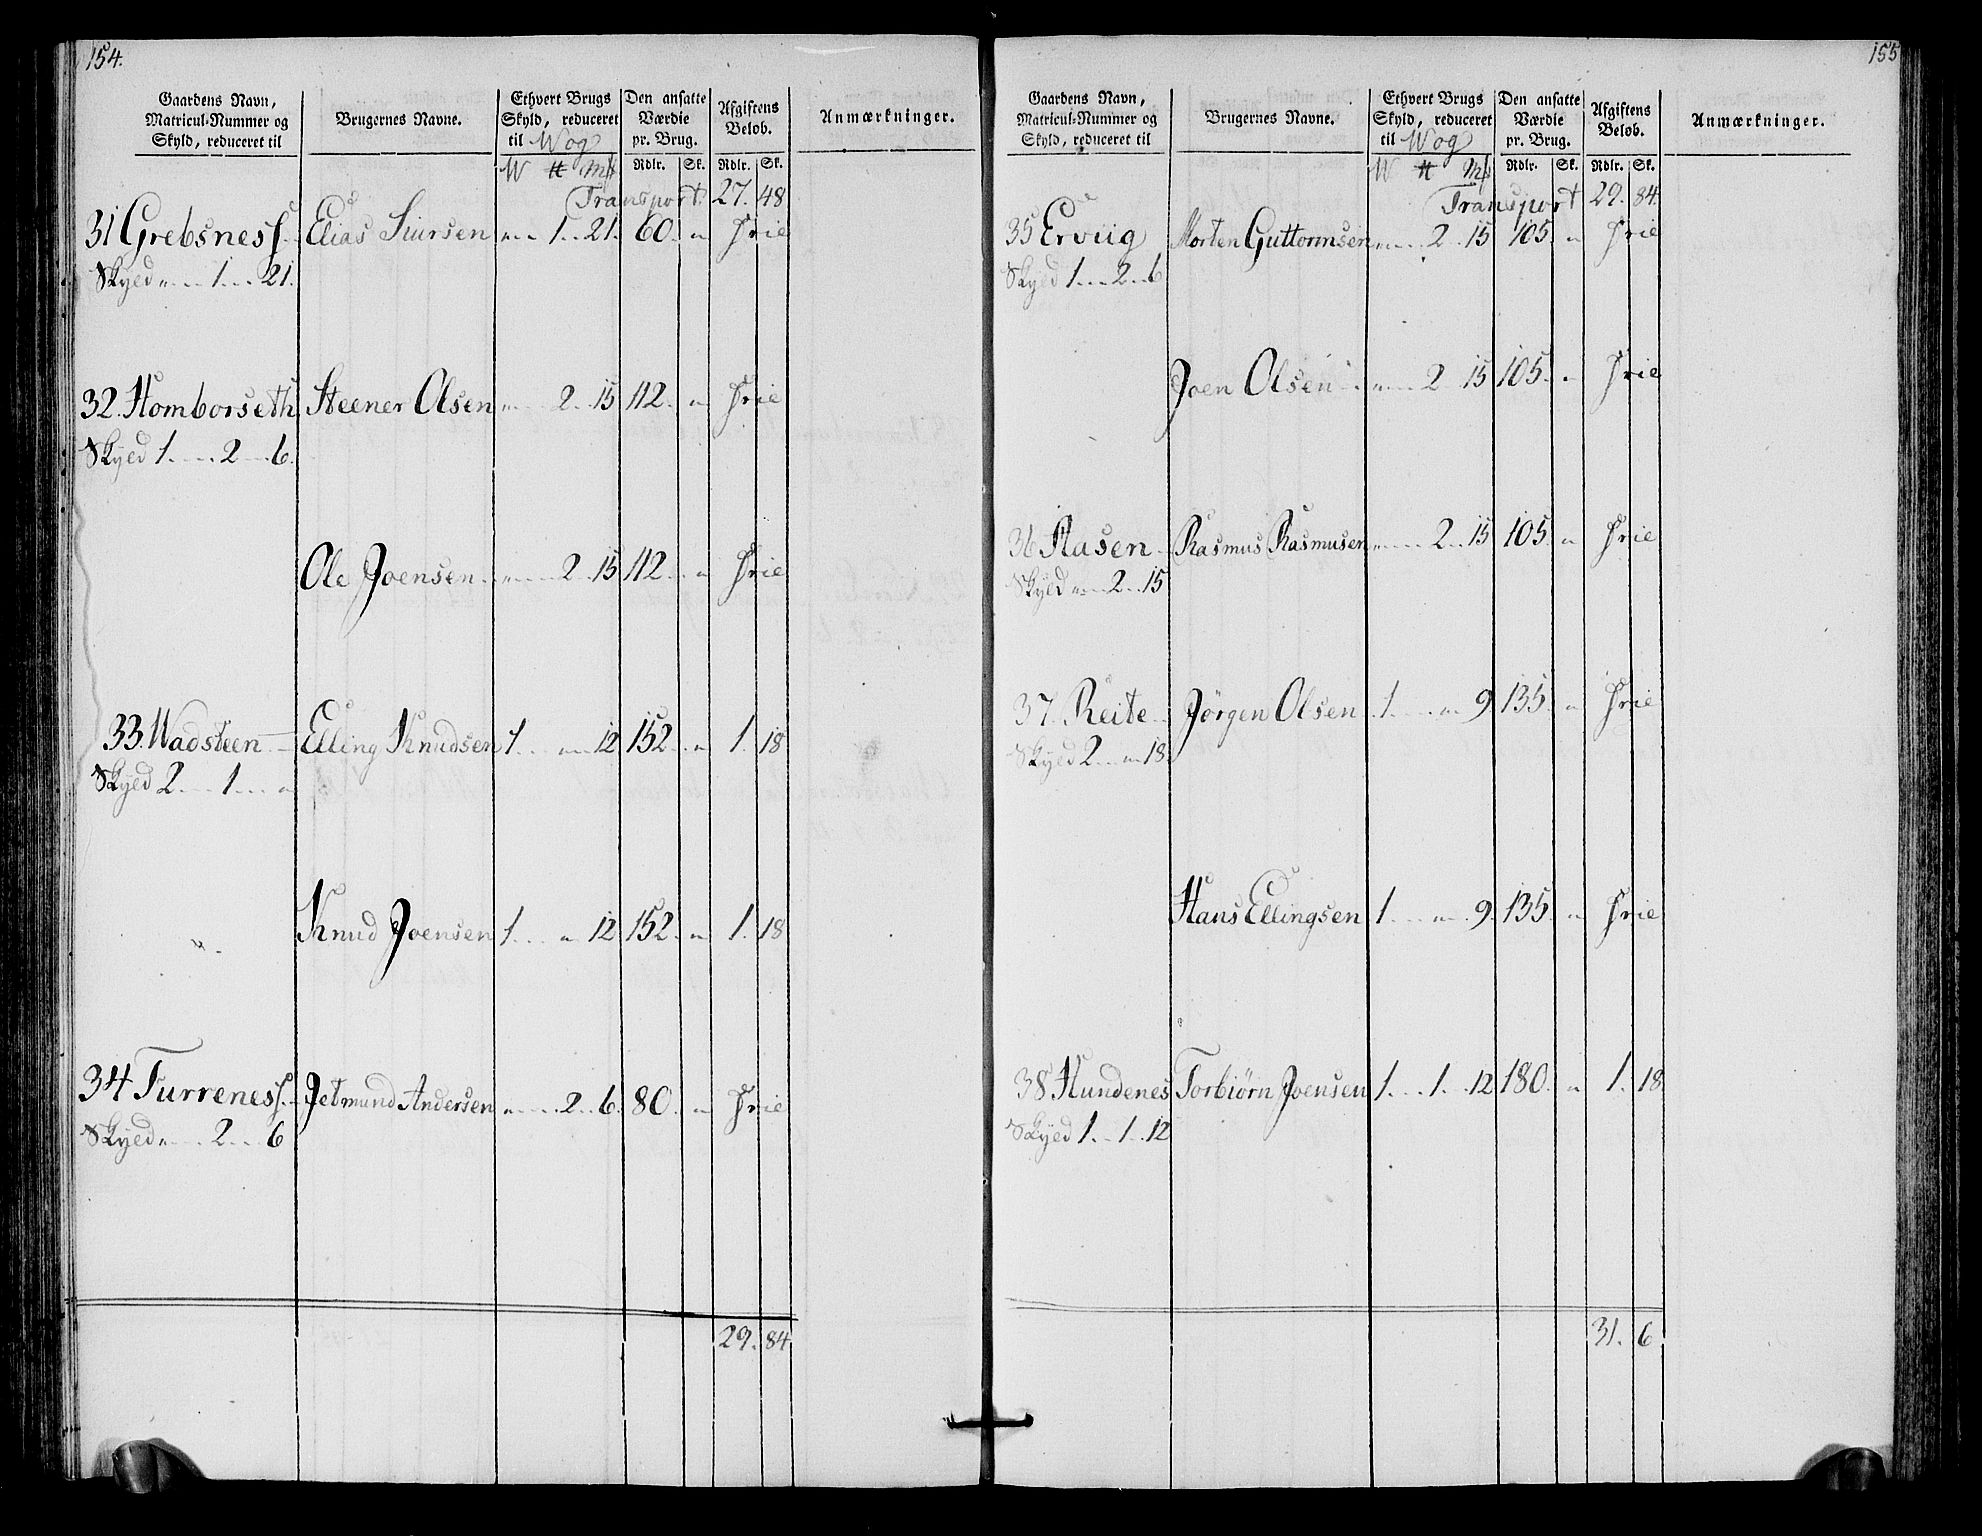 154.
Gaardens Navn, Matricul-Nummer og Skyld, reduceret til
Brugernes Navne.
Ethvert Brugs Skyld, reduceret til Wog
Den ansatte Værdie pr. Brug.
Afgiftens Beløb.
Anmærkninger.
W ℔ mk Rdlr. Sk. Rdlr. Sk.
Transport 27. 48
31 Grebsness. Elias Siursen „ 1. 21. 60. „ Frie
Skyld „ 1. 21.
32. Homborseth Steener Olsen „ 2. 15 112. „ Frie
Skyld 1. 2. 6.
Ole Joensen „ 2. 15 112. „ Frie
33. Wadsteen Elling Knudsen 1. „ 12 152. „ 1. 18
Skyld 2. 1. „
Knud Joensen 1. „ 12 152. „ 1. 18
34 Turreness. Jetmund Andersen „ 2. 6. 80. „ Frie
Skyld „ 2. 6
29. 84
155
Gaardens Navn, Matricul-Nummer og Skyld, reduceret til
Brugernes Navne.
Ethvert Brugs Skyld, reduceret til Wog
Den ansatte Værdie pr. Brug.
Afgiftens Beløb.
Anmærkninger.
W ℔ mk Rdlr. Sk. Rdlr. Sk.
Transport 29. 84.
35 Erviig Morten Guttormsen „ 2. 15 105. „ Frie
Skyld 1. 2. 6
Joen Olsen „ 2 15 105. „ Frie
36 Aasen Rasmus Rasmusen „ 2. 15 105. „ Frie
Skyld „ 2. 15
37. Reite Jörgen Olsen 1. „ 9 135. „ Frie
Skyld 2. „ 18.
Hans Ellingsen 1. „ 9. 135. „ Frie
38 Hundenes Torbiörn Joensen 1. 1. 12 180. „ 1. 18
Skyld 1. 1. 12
31. 6